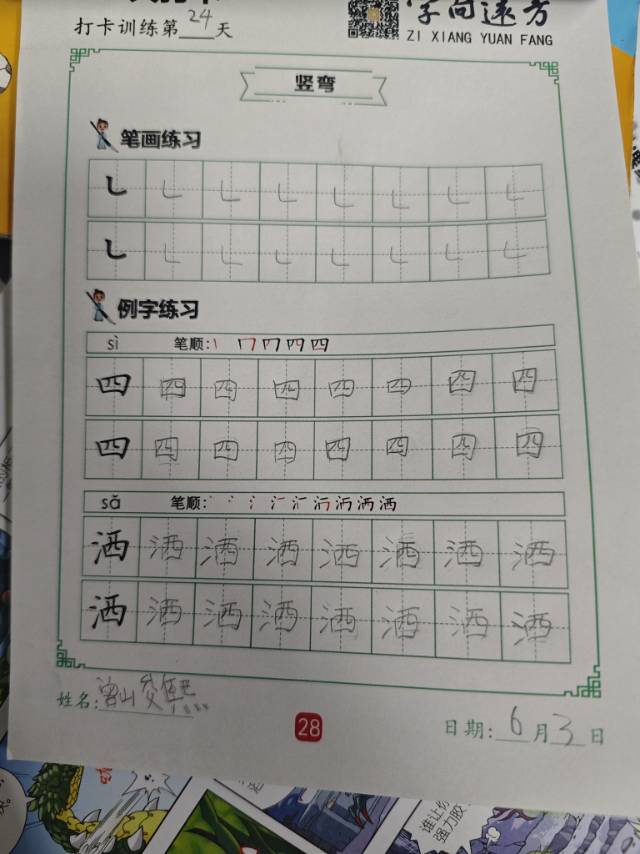 打卡训练第24天
字向远方
ZI XIANG YUAN FANG
竖弯
笔画练习
例字练习
sì 笔顺:
四 四 四 四 四 四 四 四
四 四 四 四 四 四 四 四
sǎ 笔顺:
洒 洒 洒 洒 洒 洒 洒 洒
洒 洒 洒 洒 洒 洒 洒 洒
姓名:
28
日期:6月3日
谁让你
强力胶